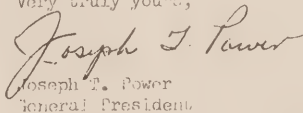 Very truly yours,
Joseph T. Power
Joseph T. Power
General President